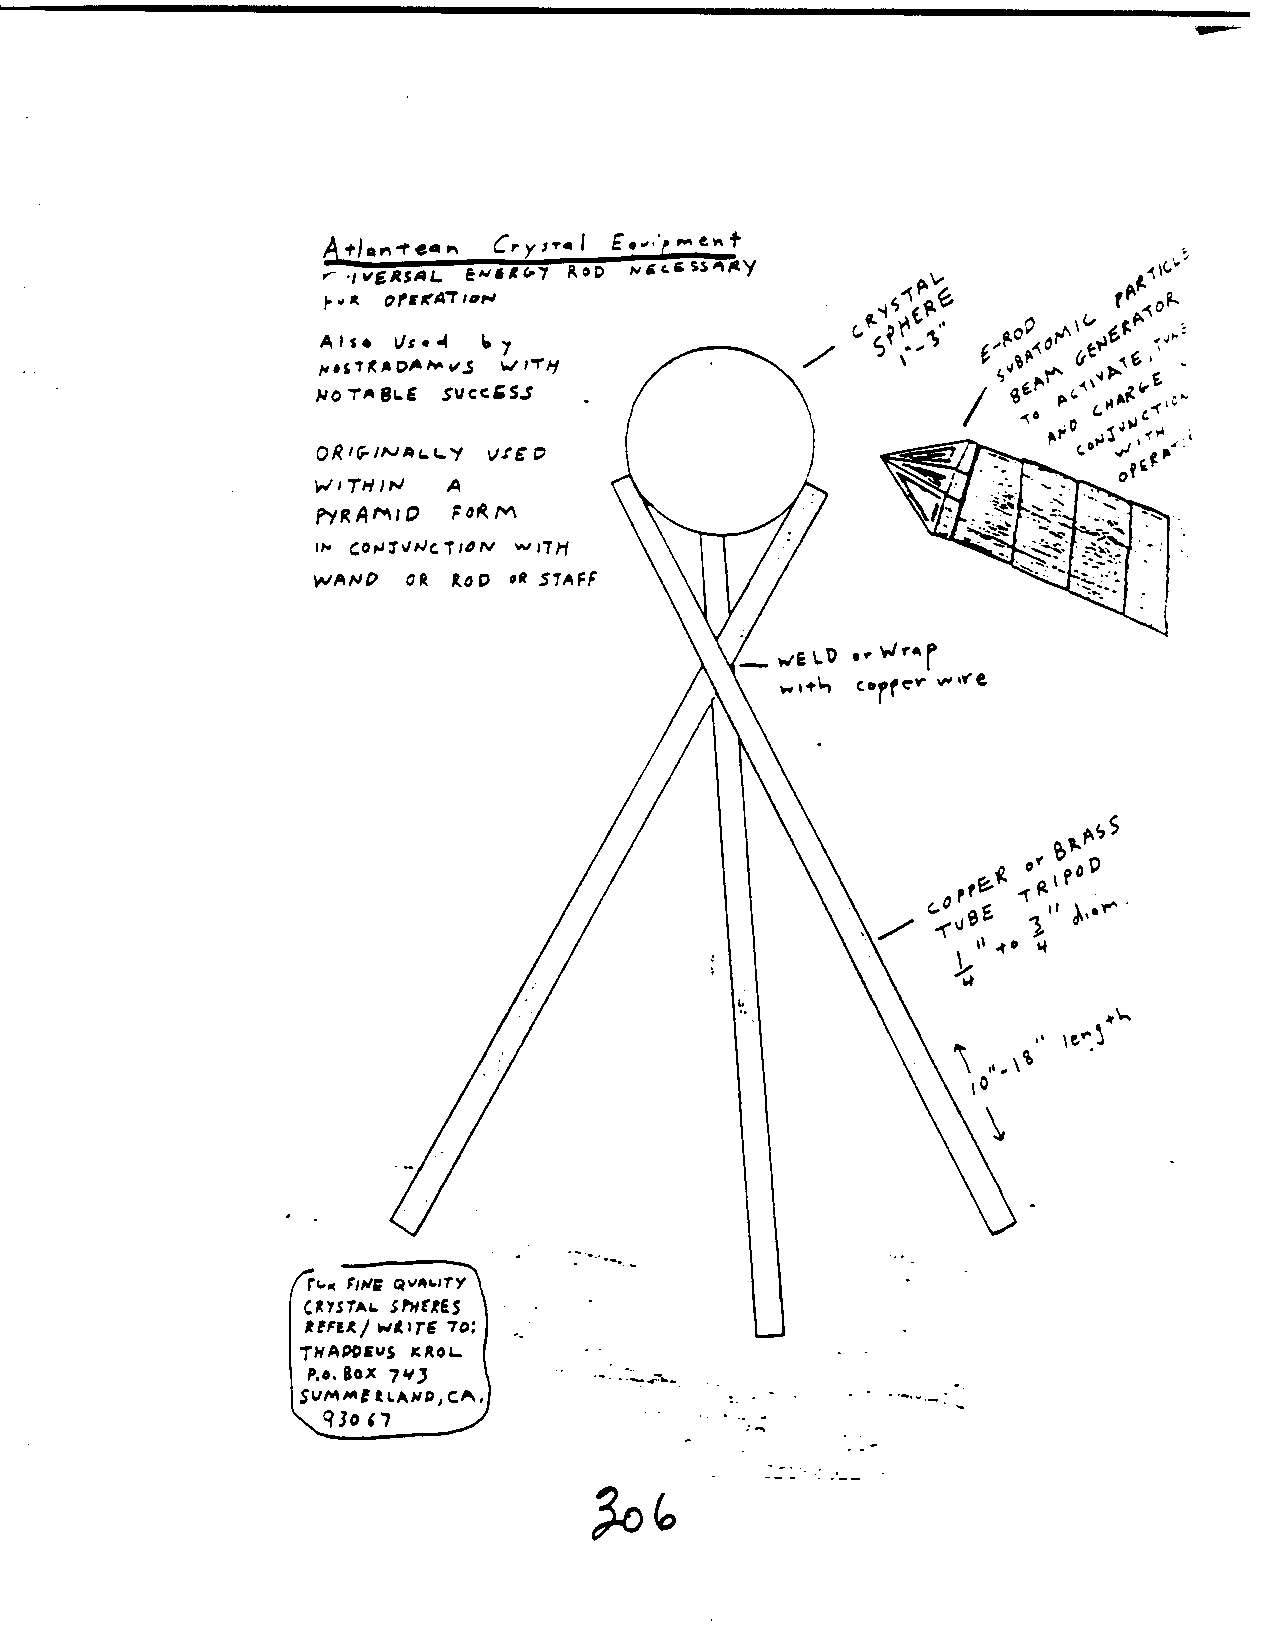 Atlantean Crystal Equipment
IVERSAL ENERGY ROD NECESSARY
FOR OPERATION
Also Used by
NOSTRADAMUS WITH
NOTABLE SUCCESS
ORIGINALLY USED
WITHIN A
PYRAMID FORM
IN CONJUNCTION WITH
WAND OR ROD OR STAFF
CRYSTAL
SPHERE
1"-3"
E-ROD
SUBATOMIC PARTICLE
BEAM GENERATOR
TO ACTIVATE, TUNE
AND CHARGE
CONJUNCTION
WITH
OPERAT
WELD or Wrap
with copper wire
COPPER or BRASS
TUBE TRIPOD
1/4" to 3/4" diam.
10"-18" length
FOR FINE QUALITY
CRYSTAL SPHERES
REFER/WRITE TO:
THADDEUS KROL
P.O. BOX 743
SUMMERLAND, CA.
93067
306